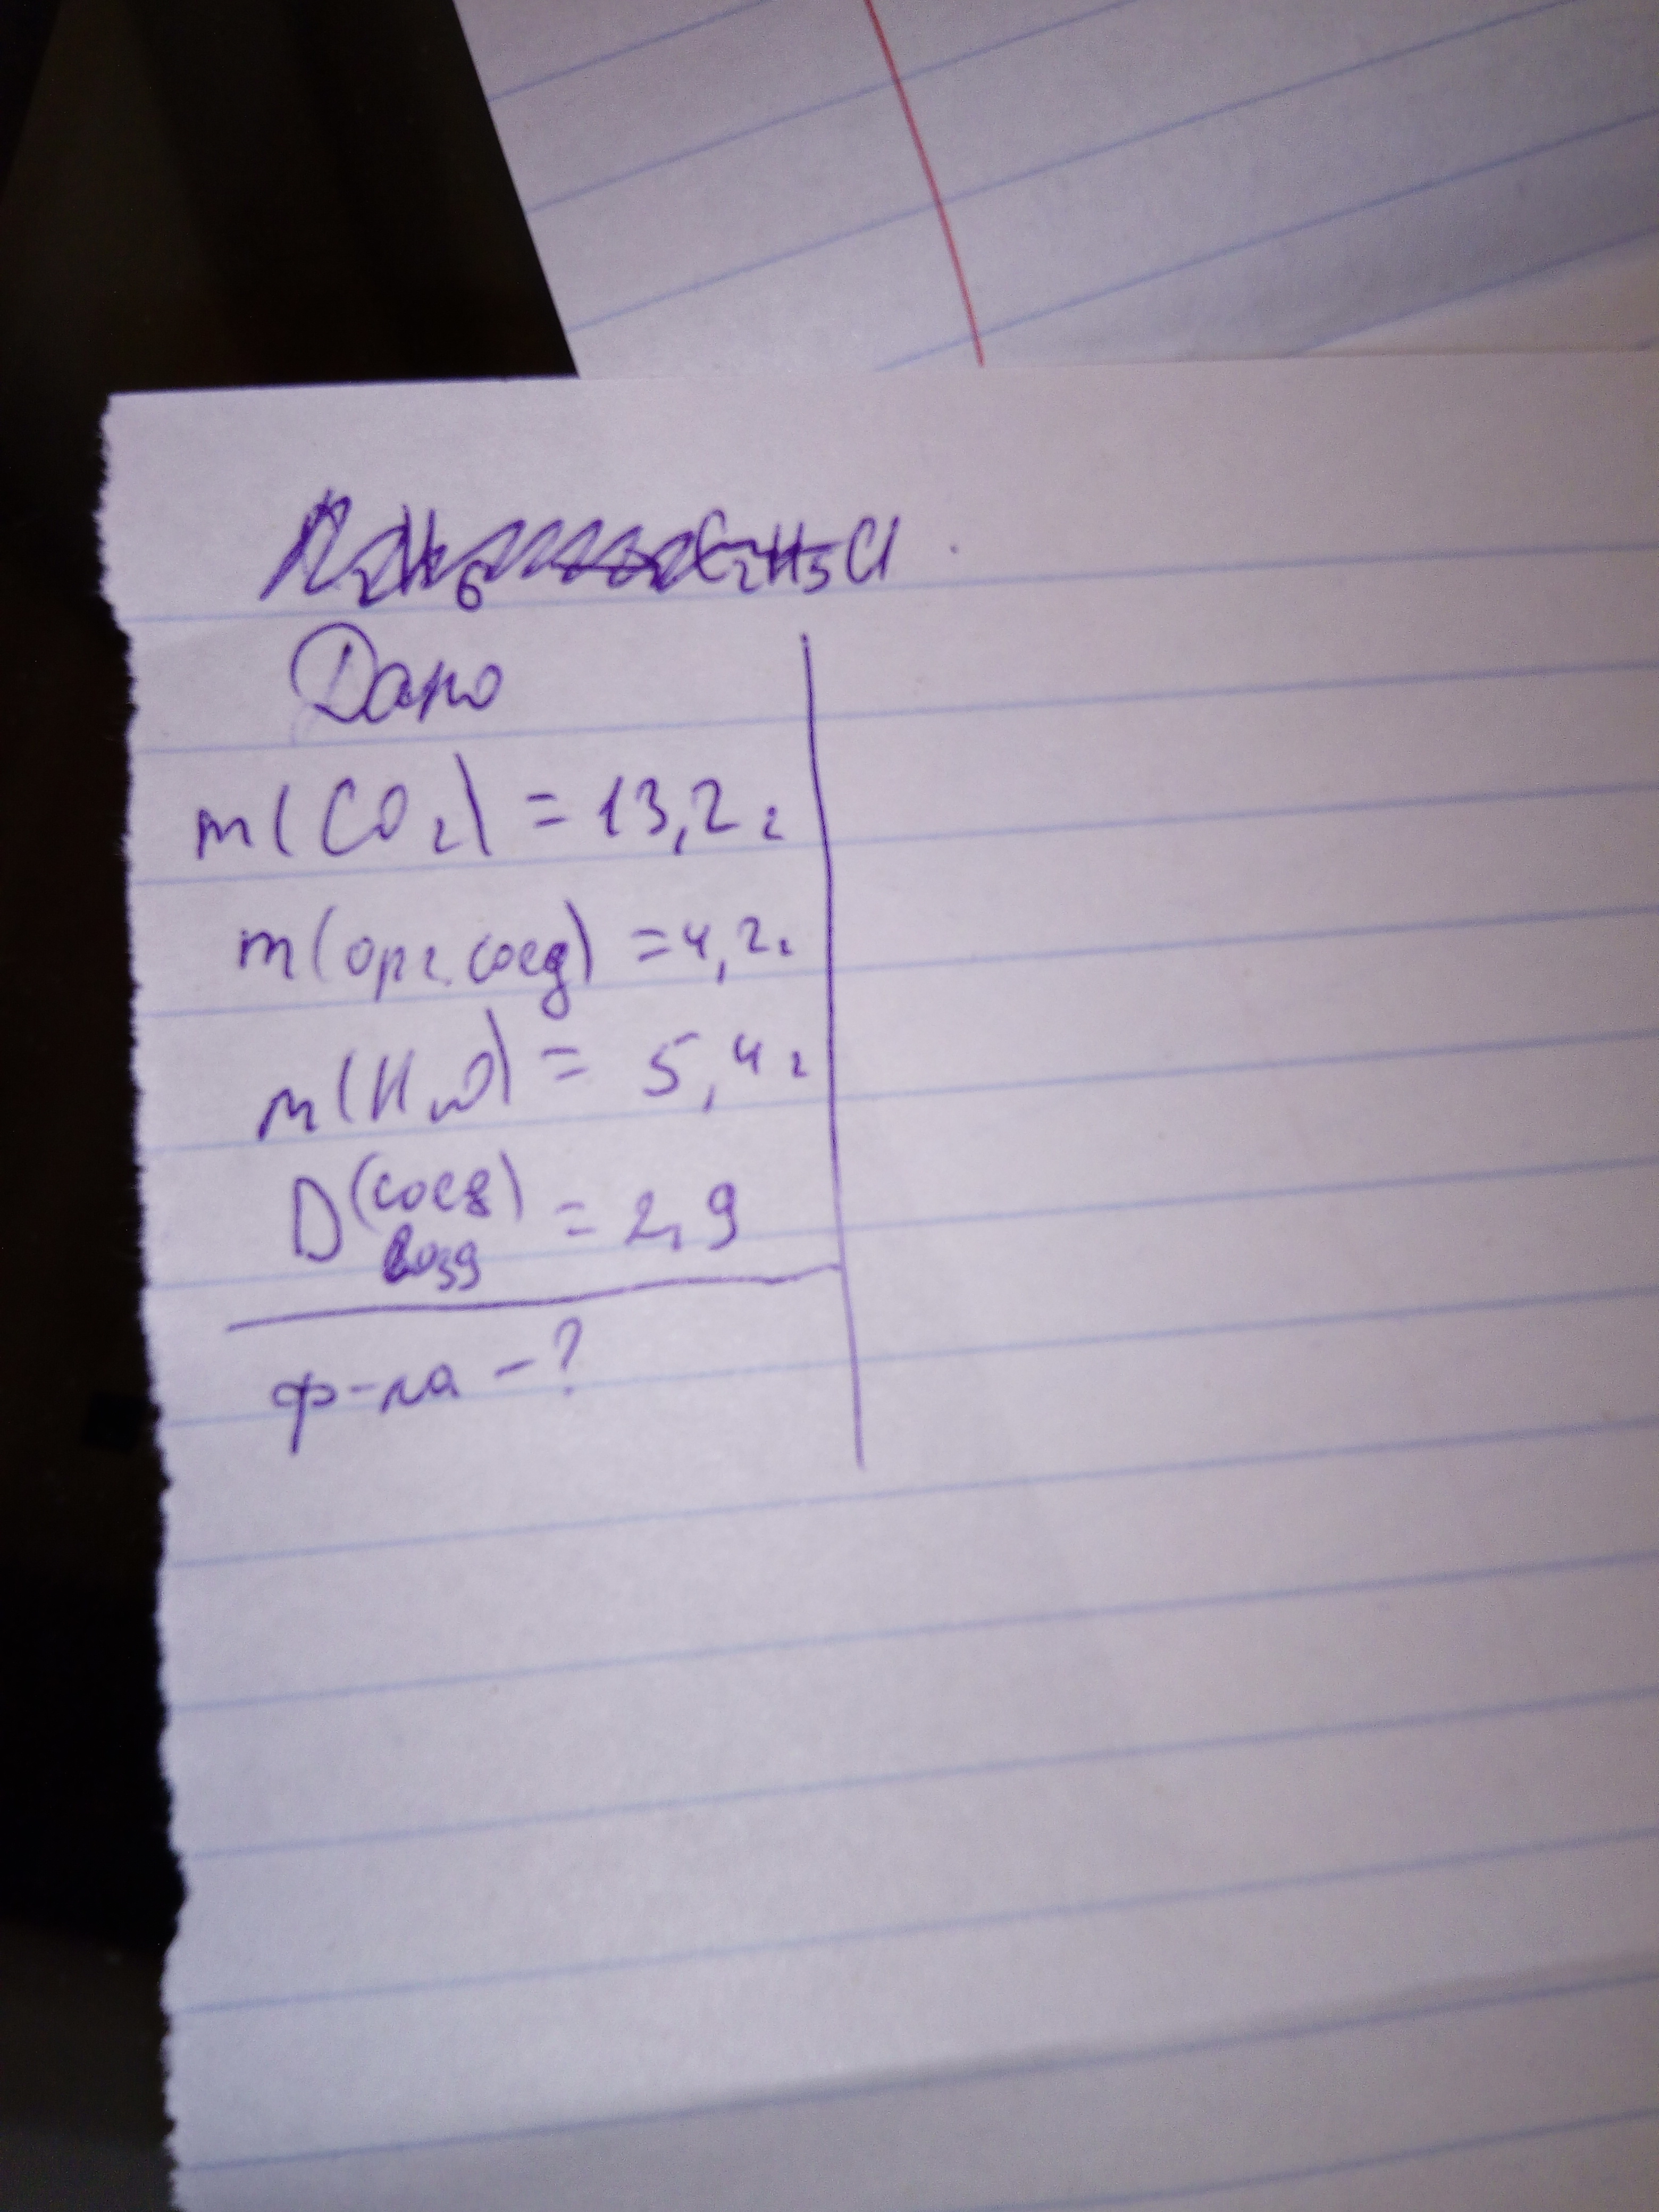 C₂H₅Cl
Дано
m(CO₂) = 13,2 г
m(орг. соед) = 4,2 г
m(H₂O) = 5,4 г
D(соед) возд = 2,9
ф-ла - ?